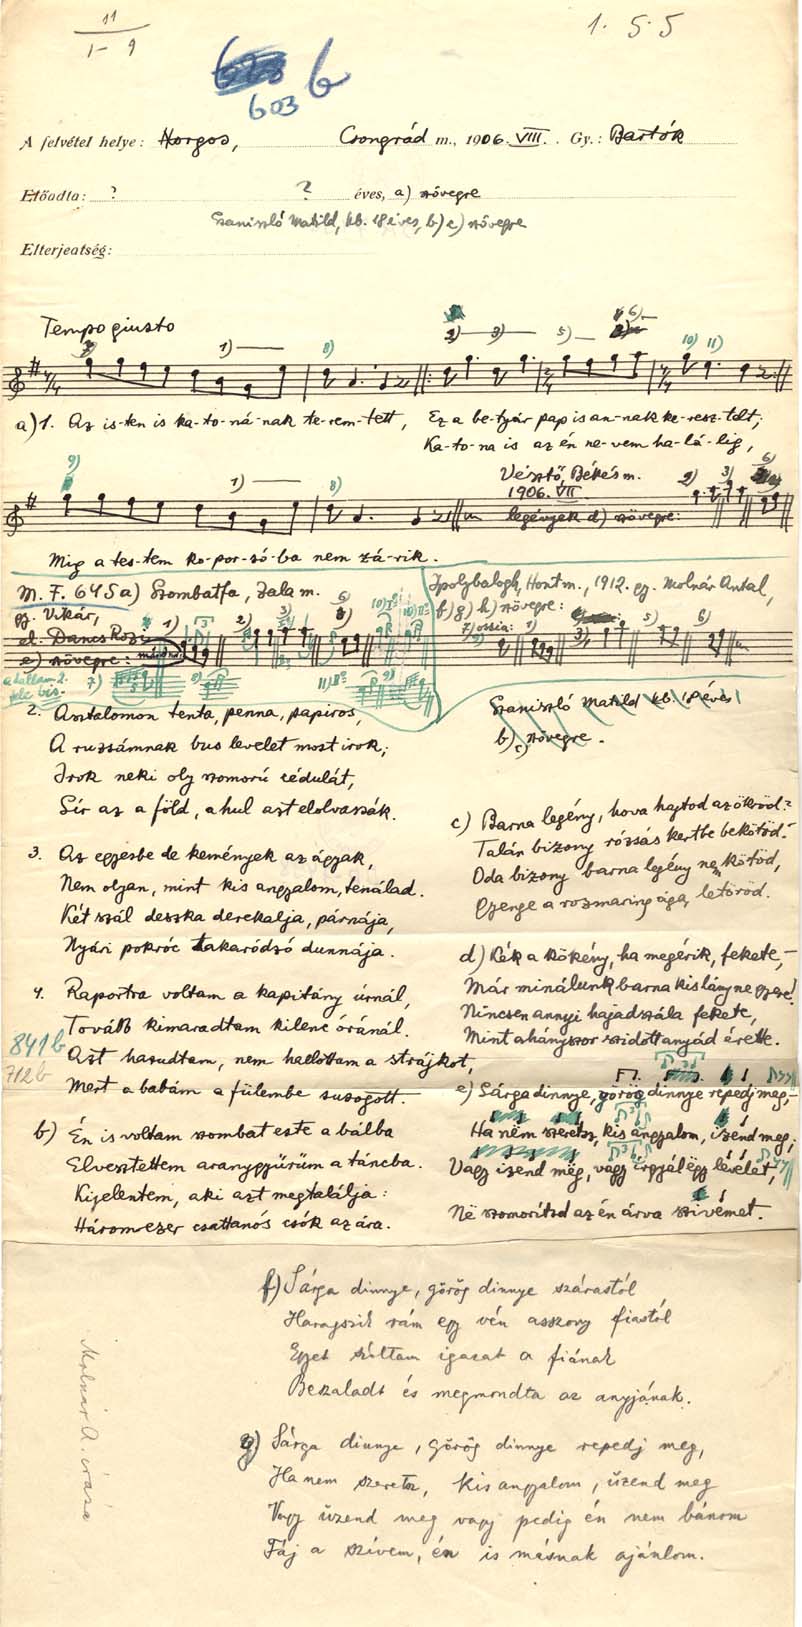 11
1-9
1. 5 5
603 b
A felvétel helye: Horgos, Csongrád m., 1906. VIII. Gy.: Bartók
Előadta: ? ? éves, a) szövegre
Szaniszló Matild, kb. 18 éves, b) c) szövegre
Elterjeatség:
Tempo giusto
1) 8) 2) 3) 5) 6) 10) 11)
a) 1. Az is-ten is ka-to-ná-nak te-rem-tett, Ez a be-tyár pap is an-nak ke-resz-telt;
Ka-to-na is az én ne-vem ha-lá-lig,
9) 1) 8) Vésztő, Békés m. 2) 3) 6)
1906. VII.
legények d) szövegre:
Mig a tes-tem ko-por-só-ba nem zá-rik.
M. F. 645a) Szombatfa, Zala m.
gy. Vikár,
el. Dancs Rozi
e) szövegre:
Ipolybalogh, Hont m., 1912. gy. Molnár Antal,
f) g) h) szövegre:
7) ossia: 1) 3) 5) 6)
Szaniszló Matild kb. 18 éves
b) c) szövegre.
2. Asztalomon tenta, penna, papiros,
A ruzsámnak bus levelet most irok;
Irok neki oly szomorú cédulát,
Sír az a föld, ahul azt elolvassák.
3. Az egyesbe de kemények az ágyak,
Nem olyan, mint kis angyalom, tenálad.
Két szál deszka derekalja, párnája,
Nyári pokróc takaródzó dunnája.
4. Raportra voltam a kapitány úrnál,
Tovább kimaradtam kilenc óránál.
Azt hazudtam, nem hallottam a strájkot,
Mert a babám a fülembe suzogott.
841b
712b
b) Én is voltam szombat este a bálba
Elvesztettem aranygyűrűm a táncba.
Kijelentem, aki azt megtalálja:
Háromezer csattanós csók az ára.
c) Barna legény, hova hajtod az ökröd?
Talán bizony rózsás kertbe bekötöd?
Oda bizony barna legény ne kötöd,
Gyenge a rozmaring ága, letöröd.
d) Kék a kökény, ha megérik, fekete,-
Már minálunk barna kislány ne gyere!
Nincsen annyi hajadszála fekete,
Mint ahányszor szidott anyád érette.
e) Sárga dinnye, görög dinnye repedj meg,-
Ha nëm szeretsz, kis angyalom, izend meg;
Vagy izend mëg, vagy irgyál ëgy lëvelet,
Në szomorítsd az én árva szivemet.
f) Sárga dinnye, görög dinnye szárastól
Haragszik rám egy vén asszony fiastól
Egyet szóltam igazat a fiának
Beszaladt és megmondta az anyjának.
g) Sárga dinnye, görög dinnye repedj meg,
Ha nem szeretsz, kis angyalom, üzend meg
Vagy üzend meg vagy pedig én nem bánom
Fáj a szívem, én is másnak ajánlom.
Molnár A. írása